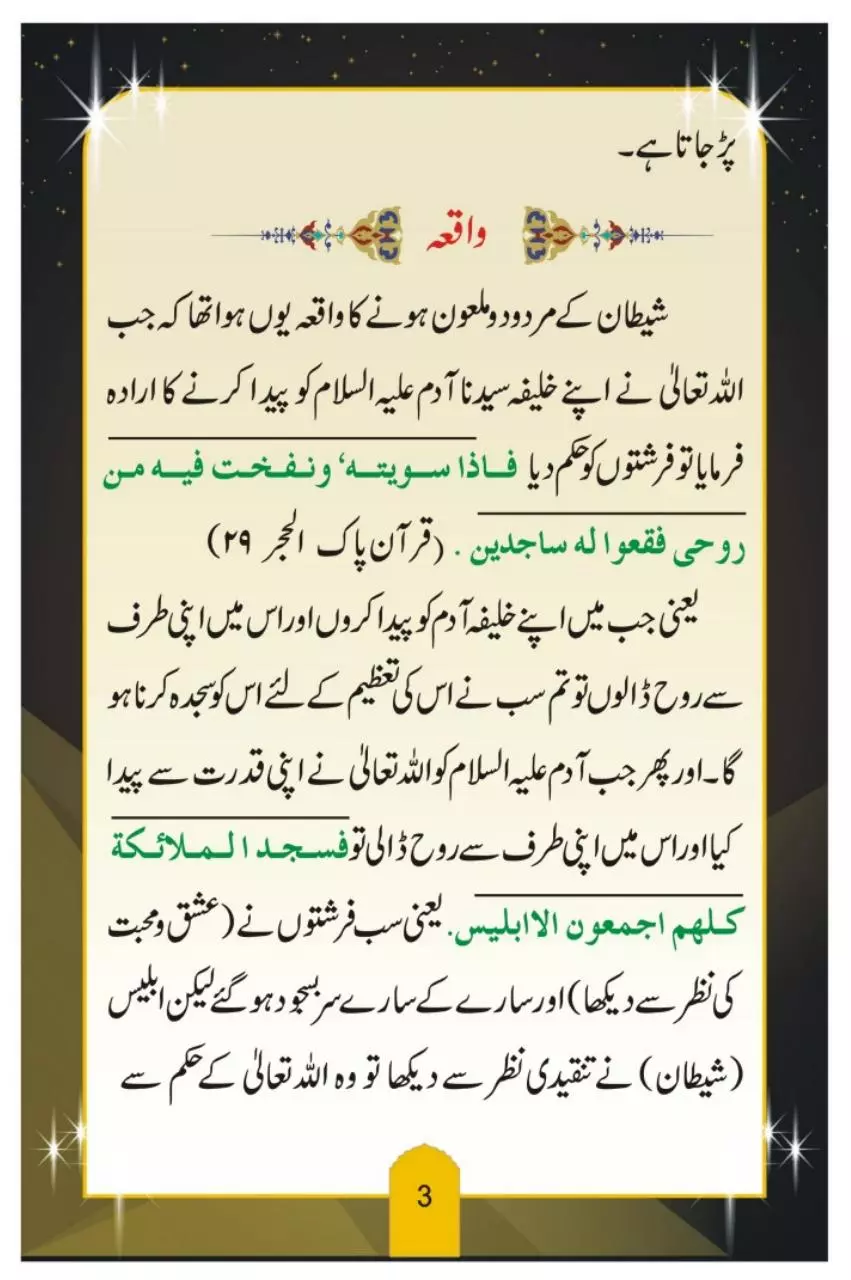 پڑ جاتا ہے۔
واقعہ
شیطان کے مردود و ملعون ہونے کا واقعہ یوں ہوا تھا کہ جب
اللہ تعالیٰ نے اپنے خلیفہ سیدنا آدم علیہ السلام کو پیدا کرنے کا ارادہ
فرمایا تو فرشتوں کو حکم دیا فاذا سویتہ، ونفخت فیہ من
روحی فقعوا لہ ساجدین . (قرآن پاک الحجر ۲۹)
یعنی جب میں اپنے خلیفہ آدم کو پیدا کروں اور اس میں اپنی طرف
سے روح ڈالوں تو تم سب نے اس کی تعظیم کے لئے اس کو سجدہ کرنا ہو
گا۔ اور پھر جب آدم علیہ السلام کو اللہ تعالیٰ نے اپنی قدرت سے پیدا
کیا اور اس میں اپنی طرف سے روح ڈالی تو فسجد الملائکة
کلھم اجمعون الا ابلیس. یعنی سب فرشتوں نے (عشق و محبت
کی نظر سے دیکھا) اور سارے کے سارے سر بسجود ہو گئے لیکن ابلیس
(شیطان) نے تنقیدی نظر سے دیکھا تو وہ اللہ تعالیٰ کے حکم سے
3